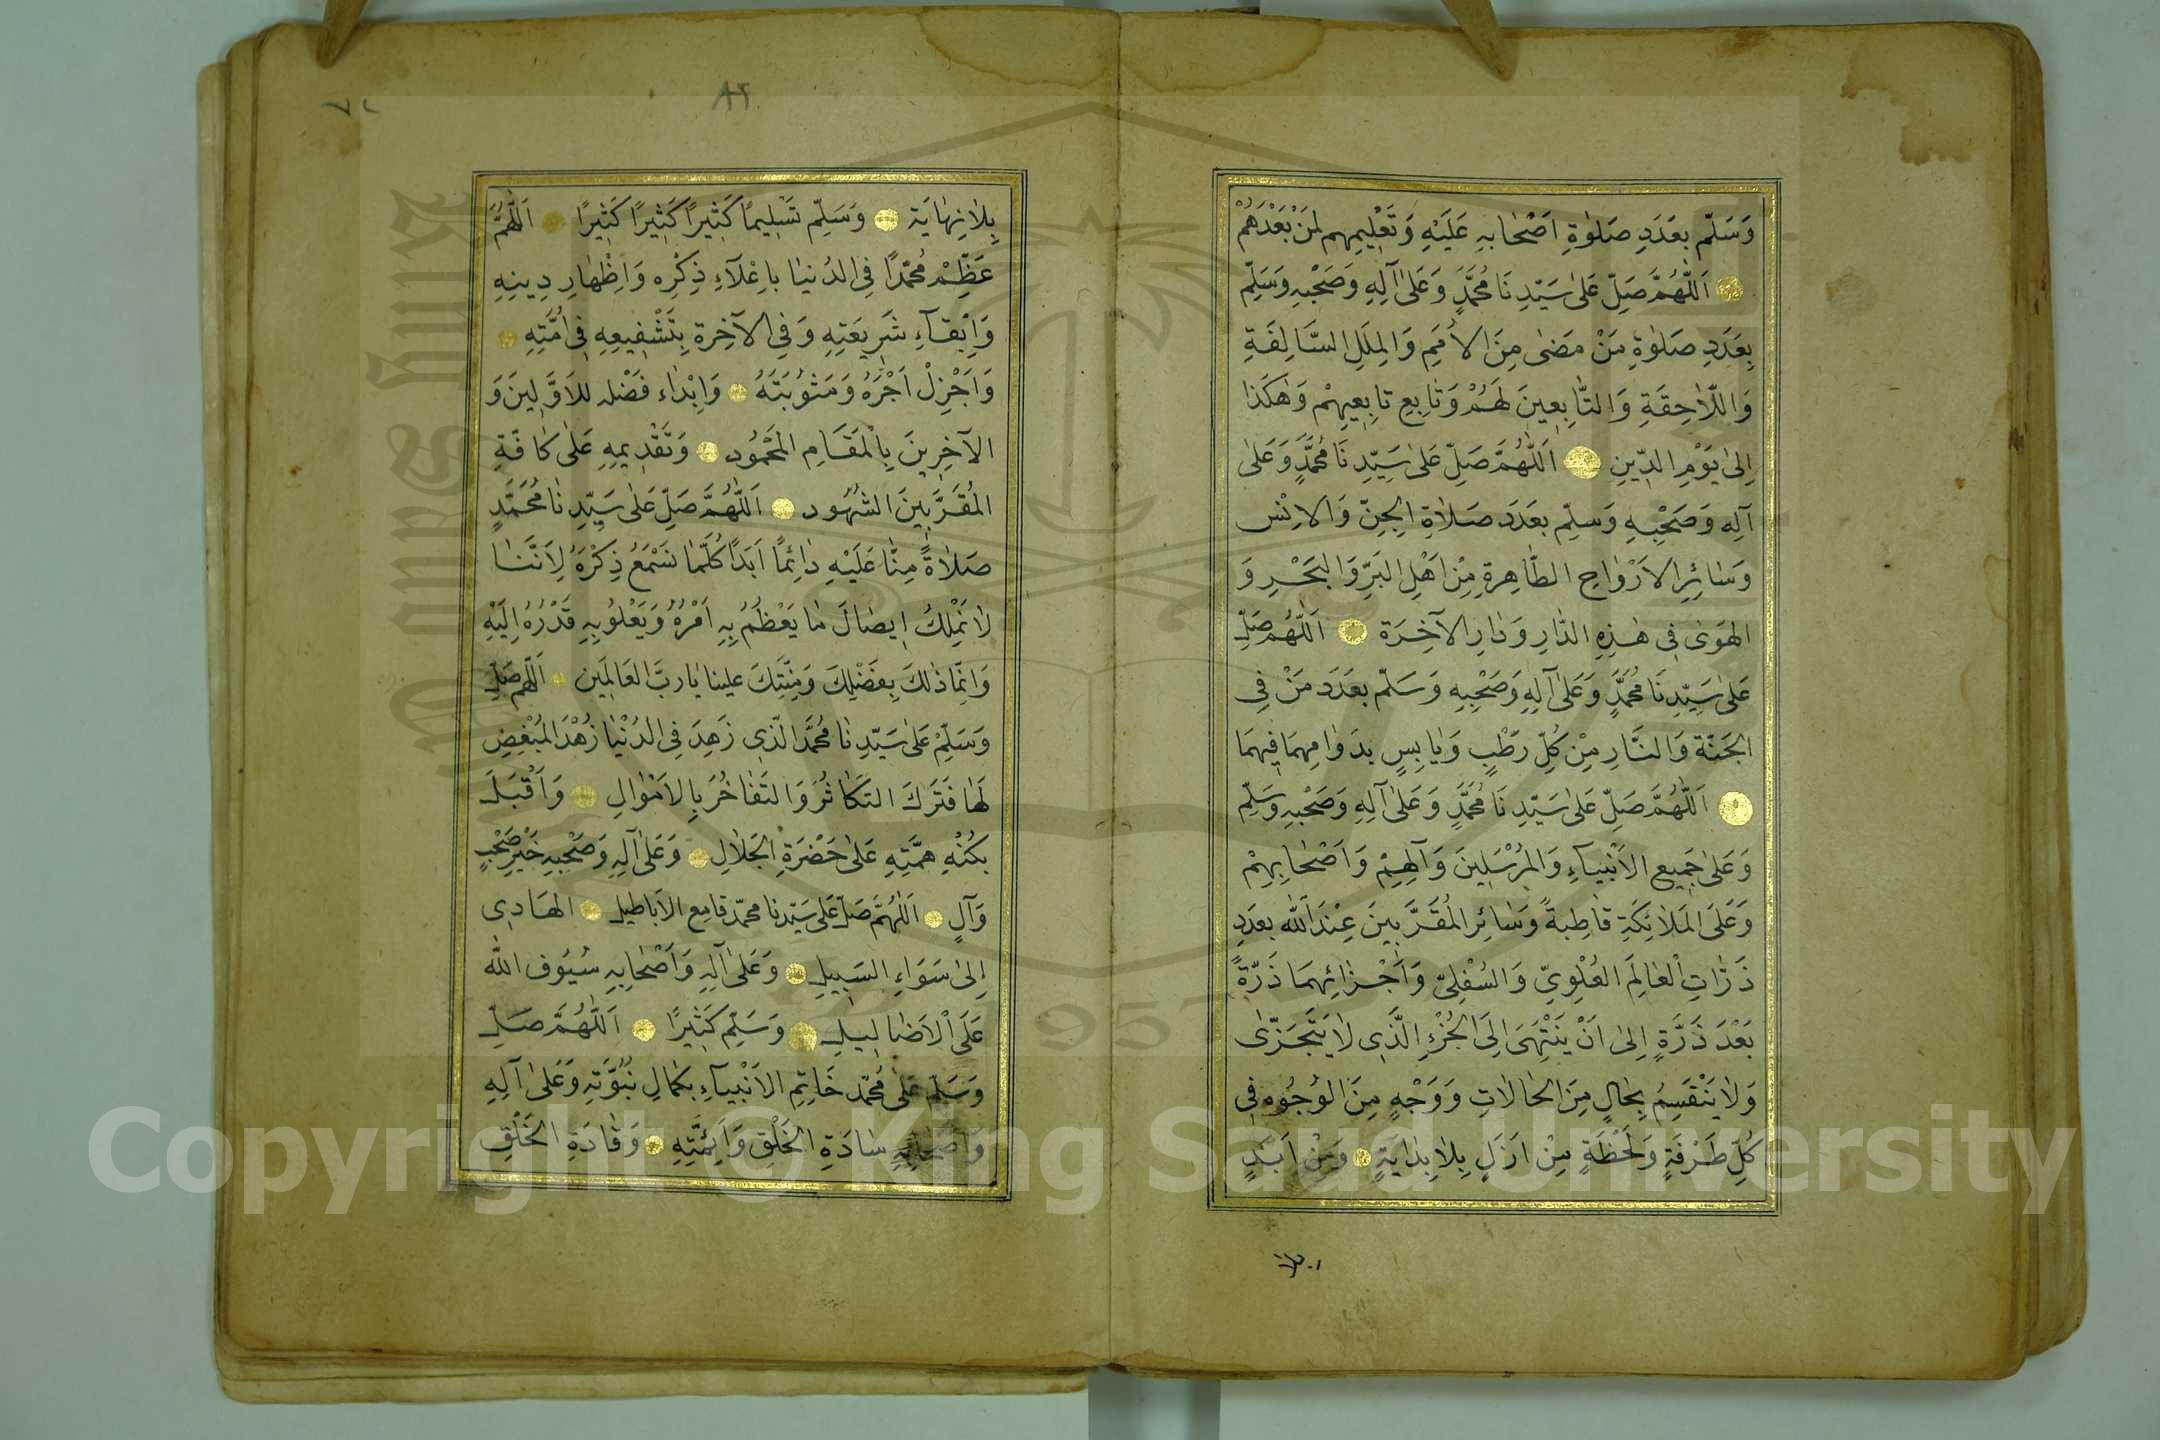 وَسَلِّم بِعَدَدِ صَلوٰةِ اَصْحٰابِهِ عَلَيْهِ وَتَعْلِيمِهِم لِمَنْ بَعْدَهُمْ
اَللّٰهُمَّ صَلِّ عَلىٰ سَيّدِنَا مُحَمَّدٍ وَعَلىٰ آلِهِ وَصَحْبِهِ وَسَلِّم
بِعَدَدِ صَلوٰةِ مَنْ مَضىٰ مِنَ الاُمَمِ وَالمِلَلِ السَّالِفَةِ
وَاللّاٰحِقَةِ وَالتّٰابِعِينَ لَهُمْ وَتٰابِعِ تٰابِعِيهِمْ وَهٰكَذا
اِلىٰ يَوْمِ الدّينِ اَللّٰهُمَّ صَلِّ عَلىٰ سَيِّدِنَا مُحَمَّدٍ وَعَلىٰ
آلِهِ وَصَحْبِهِ وَسلِّم بعَدَدَ صَلاٰةِ الجِنِّ وَالاِنْسِ
وَسٰائِرِ الاَرْوٰاحِ الطّٰاهِرةِ مِنْ اَهْلِ البَرِّ وَالبَحْرِ وَ
الهَوٰى فِى هٰذِهِ الدّٰارِ وَدٰارِ الآخِرَة اَللّٰهُمَّ صَلِّ
عَلىٰ سَيِّدِنَا مُحَمَّدٍ وَعَلىٰ آلِهِ وَصَحْبِهِ وَسَلِّم بعَدَدَ مَنْ فِى
الجَنّة وَالنَّارِ مِنْ كُلِّ رَطْبٍ وَيٰابِسٍ بدَوٰامِهمَا فِيهِمَا
اَللّٰهُمَّ صَلِّ عَلىٰ سَيّدِنَا مُحَمَّدٍ وَعَلىٰ آلِهِ وَصَحْبِهِ وَسَلِّم
وَعَلىٰ جَمِيعِ الاَنْبِيآءِ وَالمُرْسَلِينَ وَآلِهِمْ وَاَصْحٰابِهِمْ
وَعَلَى المَلاٰئِكَةِ قٰاطِبةً وَسٰائِرِ المُقَرَّبِينَ عِنْدَ اللّٰهِ بعدَدِ
ذَرّٰاتِ الْعٰالَمَ العُلْوِىِّ وَالسُفْلِىّ وَاَجْزٰائِهِمَا ذَرّةً
بَعْدَ ذَرَّةٍ اِلىٰ اَنْ يَنْتَهِىَ اِلَى الجُزْءِ الَّذِى لاٰ يَتَجَزّىٰ
وَلاٰ يَنْقَسِمُ بِحٰالٍ مِنَ الحٰالاٰتِ وَوَجْهٍ مِنَ الوُجُوهِ فِى
كُلِّ طَرْفَةٍ وَلَحْظَةٍ مِنْ اَزَلٍ بِلاٰ بِدٰايَةٍ وَمِنْ اَبَدٍ
بلا
٨٢
بِلاٰ نِهٰايَة وَسَلِّم تَسْلِيمًا كَثِيرًا كَثِيرًا كَثِيرًا اَللّٰهُمَّ
عَظِّمْ مُحَمّدًا فِى الدُنيٰا باِعْلآءِ ذِكْرِه وَاِظْهٰارِ دِينِهِ
وَاِبْقآءِ شَرِيعَتِهِ وَفِى الآخِرة بِتَشْفِيعِهِ فِى اُمَّتِهِ
وَاَجْزِلْ اَجْرَهُ وَمَثوُبَتَهُ وَاِبْدٰاء فَضْلِه للاَوَّلِينَ وَ
الآخِرِينَ بِالْمَقَامِ المَحْمُود وَتَقْدِيمِهِ عَلىٰ كٰافَّةِ
المُقَرَّبِينَ الشُهُود اَللّٰهُمَّ صَلِّ عَلىٰ سَيِّدِنٰا مُحَمَّدٍ
صَلاٰةً مِنّٰا عَلَيْهِ دٰائِمًا اَبَدًا كُلَّمٰا نَسْمَعُ ذِكْرَهُ لِاَنَّنٰا
لاٰ نَمْلِكُ اِيصٰالَ مٰا يَعْظُمُ بِهِ اَمْرُهُ وَيَعْلُو بِهِ قَدْرُهُ اِلَيْهِ
وَاِنَّمٰا ذٰلكَ بِفَضْلِكَ وَمِنَّتِكَ علينا يٰا ربَّ العَالَمِين اَللّٰهمّ صَلِّ
وَسَلِّمْ عَلىٰ سَيّدِنٰا مُحَمَّد الَّذِى زَهِدَ فِى الدُنْيٰا زُهْدَ المُبْغِضِ
لَهٰا فَتَرَكَ التَكٰاثُرَ وَالتَفٰاخُرَ بِالاَمْوٰالِ وَاَقْبَلَ
بكُنْهِ هِمَّتِهِ عَلىٰ حَضْرَةِ الجَلاٰلِ وَعَلىٰ آلِهِ وَصَحْبِهِ خَيْرِ صَحْبٍ
وَآلٍ اَللّٰهُمَّ صَلِّ عَلى سَيّدِنا محمّد قامِعِ الاَباطيلِ الهَادِى
اِلىٰ سَوَاءِ السَبِيلِ وَعَلىٰ آلِهِ وَاَصْحٰابِهِ سُيُوف اللّٰه
عَلَى الْاَضٰالِيلِ وَسَلِّم كَثِيرًا اَللّٰهُمَّ صَلِّ
وَسَلِّم عَلىٰ مُحَمّد خَاتِمِ الاَنْبِيآءِ بكمَالِ نُبُوَّتِهِ وَعَلىٰ آلِهِ
وَاَصْحٰابِهِ سٰادَةِ الخَلْقِ وَاَئِمَّتِهِ وَقٰادَةِ الخَلْقِ
King Saud University
1957
Copyright © King Saud University